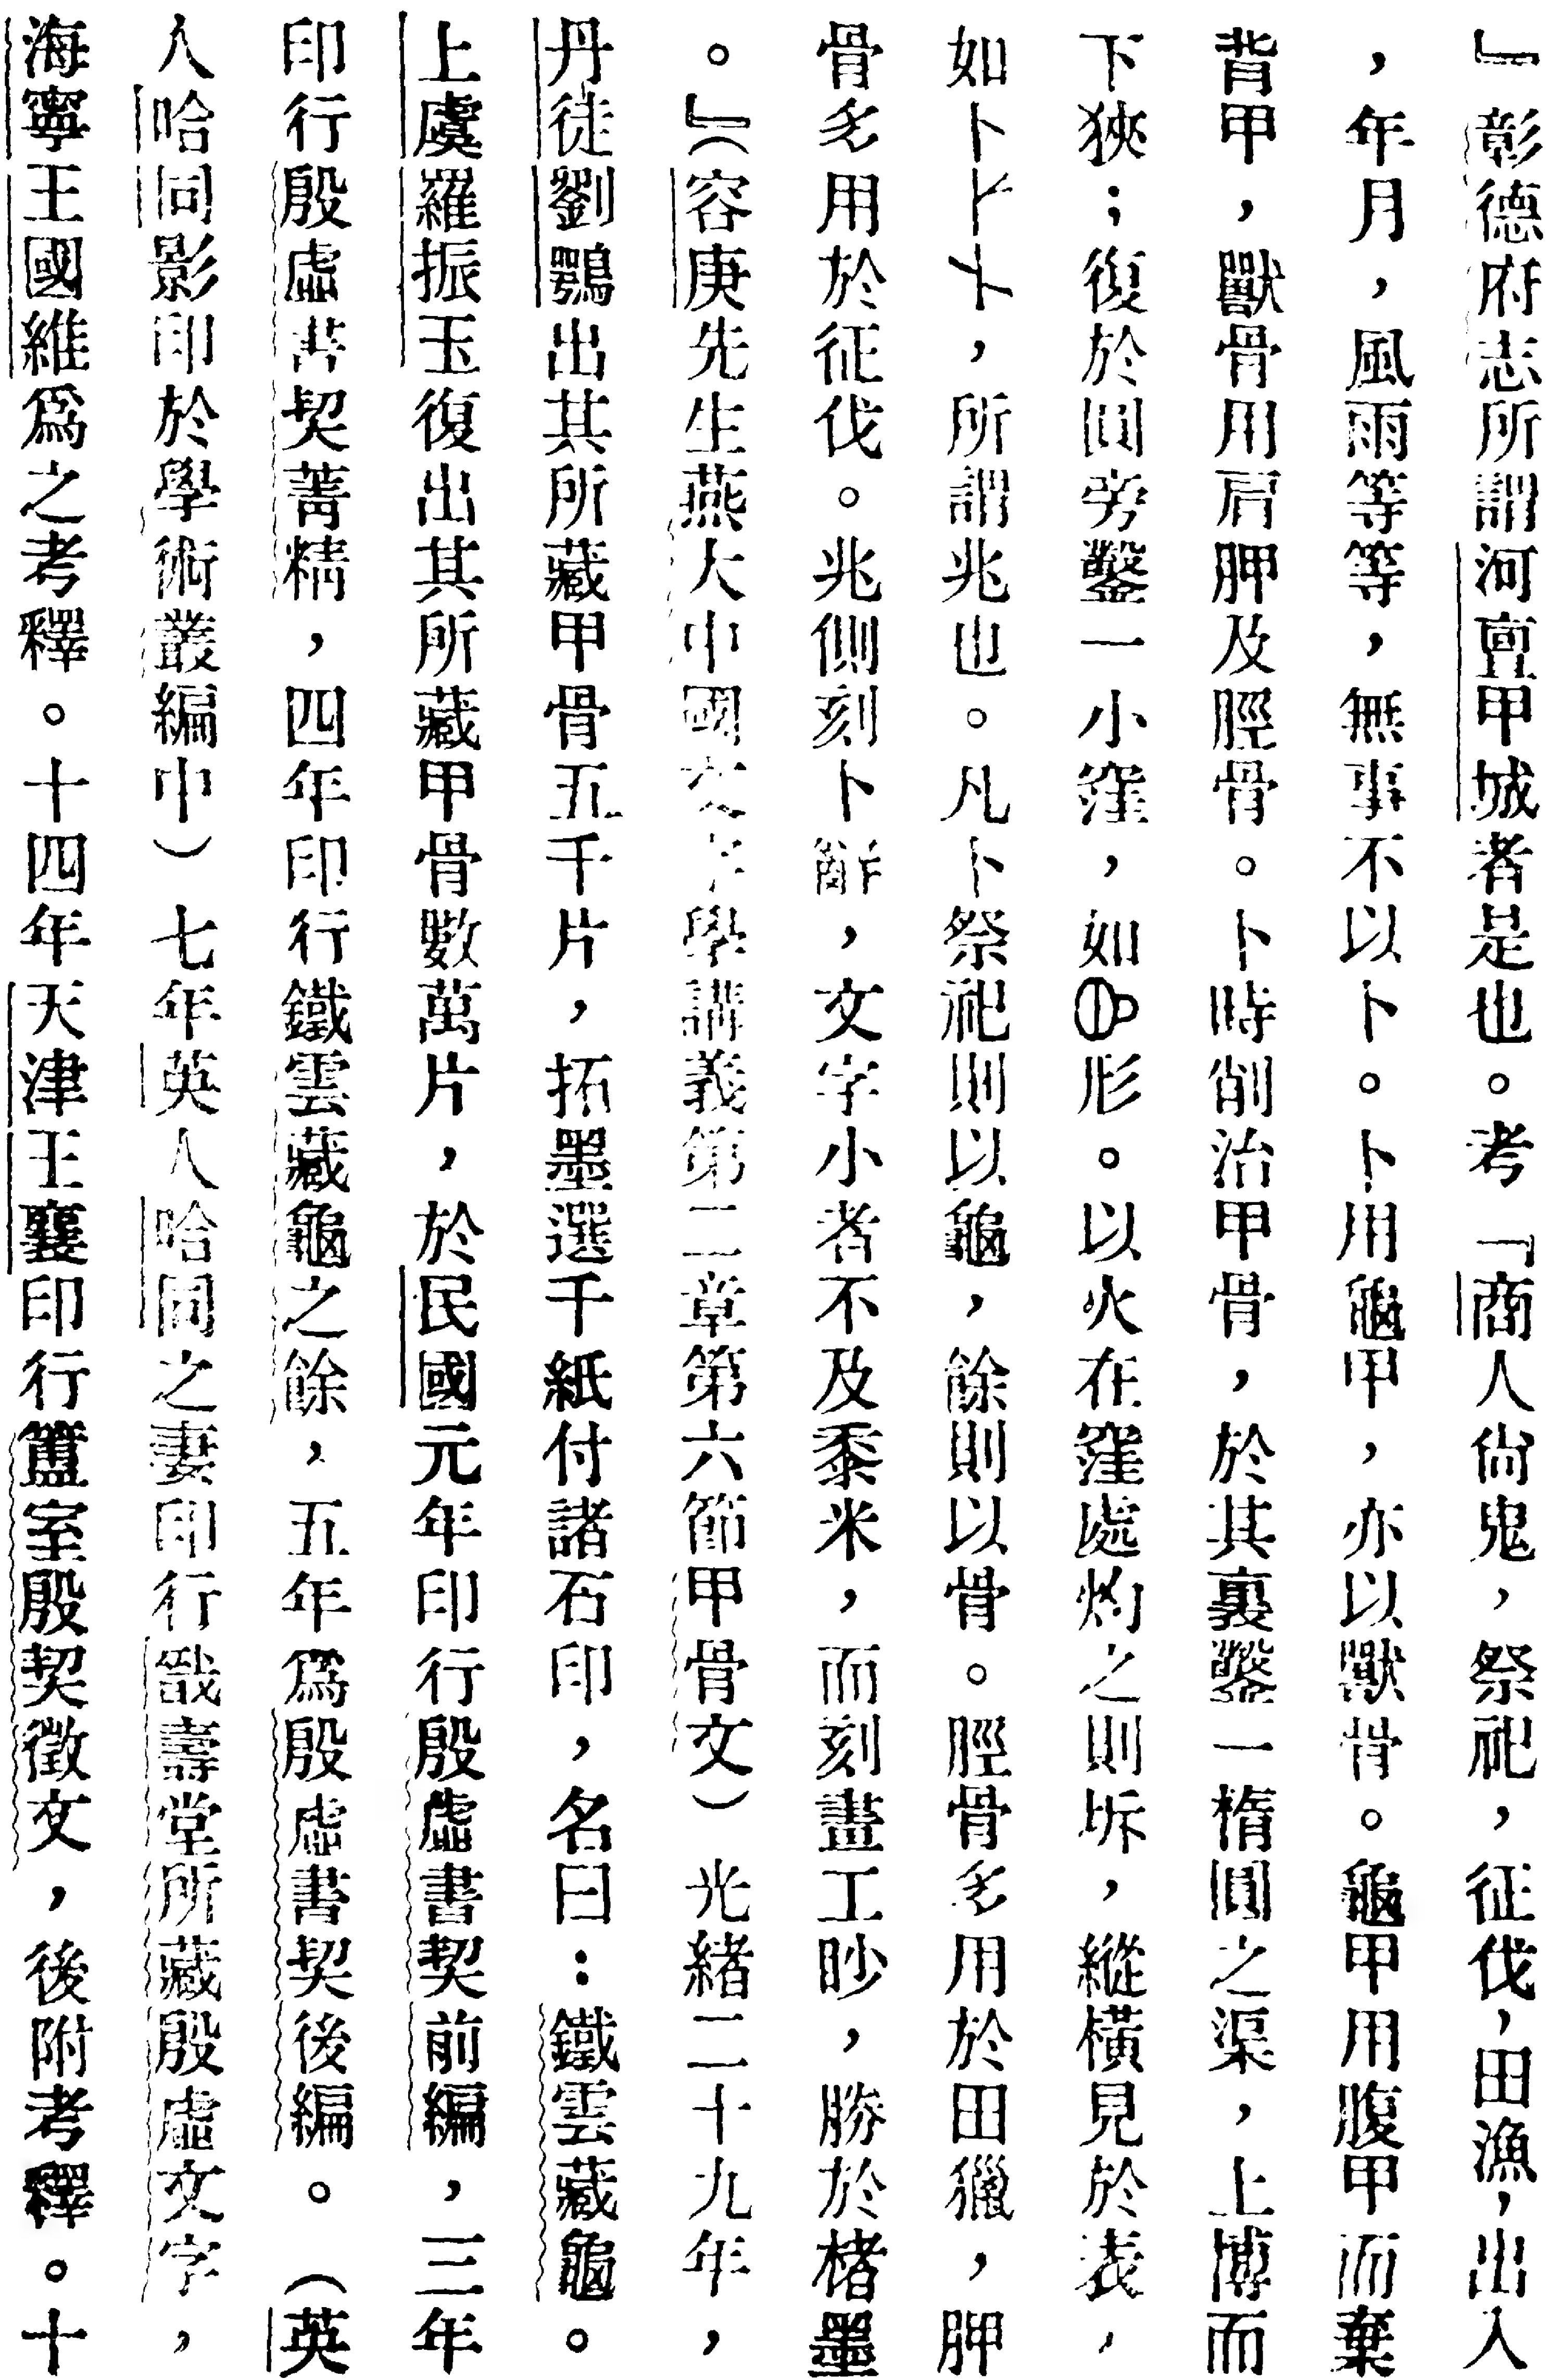 」彰德府志所謂河亶甲城者是也。考「商人尙鬼，祭祀，征伐，田漁，出入
，年月，風雨等等，無事不以卜。卜用龜甲，亦以獸骨。龜甲用腹甲而棄
背甲，獸骨用肩胛及脛骨。卜時削治甲骨，於其裏鑿一橢圓之渠，上博而
下狹；復於圓旁鑿一小窪，如形。以火在窪處灼之則坼，縱橫見於表，
如卜，所謂兆也。凡卜祭祀則以龜，餘則以骨。脛骨多用於田獵，胛
骨多用於征伐。兆側刻卜辭，文字小者不及黍米，而刻畫工眇，勝於楮墨
。」（容庚先生燕大中國文字學講義第二章第六節甲骨文）光緒二十九年，
丹徒劉鶚出其所藏甲骨五千片，拓墨選千紙付諸石印，名曰：鐵雲藏龜。
上虞羅振玉復出其所藏甲骨數萬片，於民國元年印行殷虛書契前編，三年
印行殷虛書契菁精，四年印行鐵雲藏龜之餘，五年爲殷虛書契後編。（英
人哈同影印於學術叢編中）七年英人哈同之妻印行戩壽堂所藏殷虛文字，
海寧王國維爲之考釋。十四年天津王襄印行簠室殷契徵文，後附考釋。十